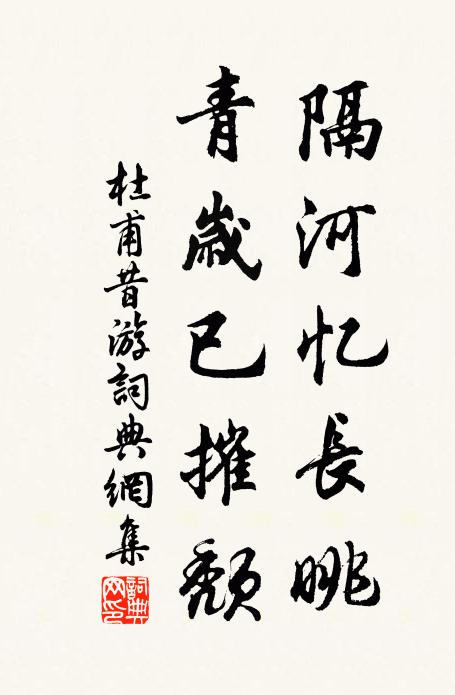 隔河忆長眺
青歲已摧頹
杜甫昔游詞典網集
詞典网印